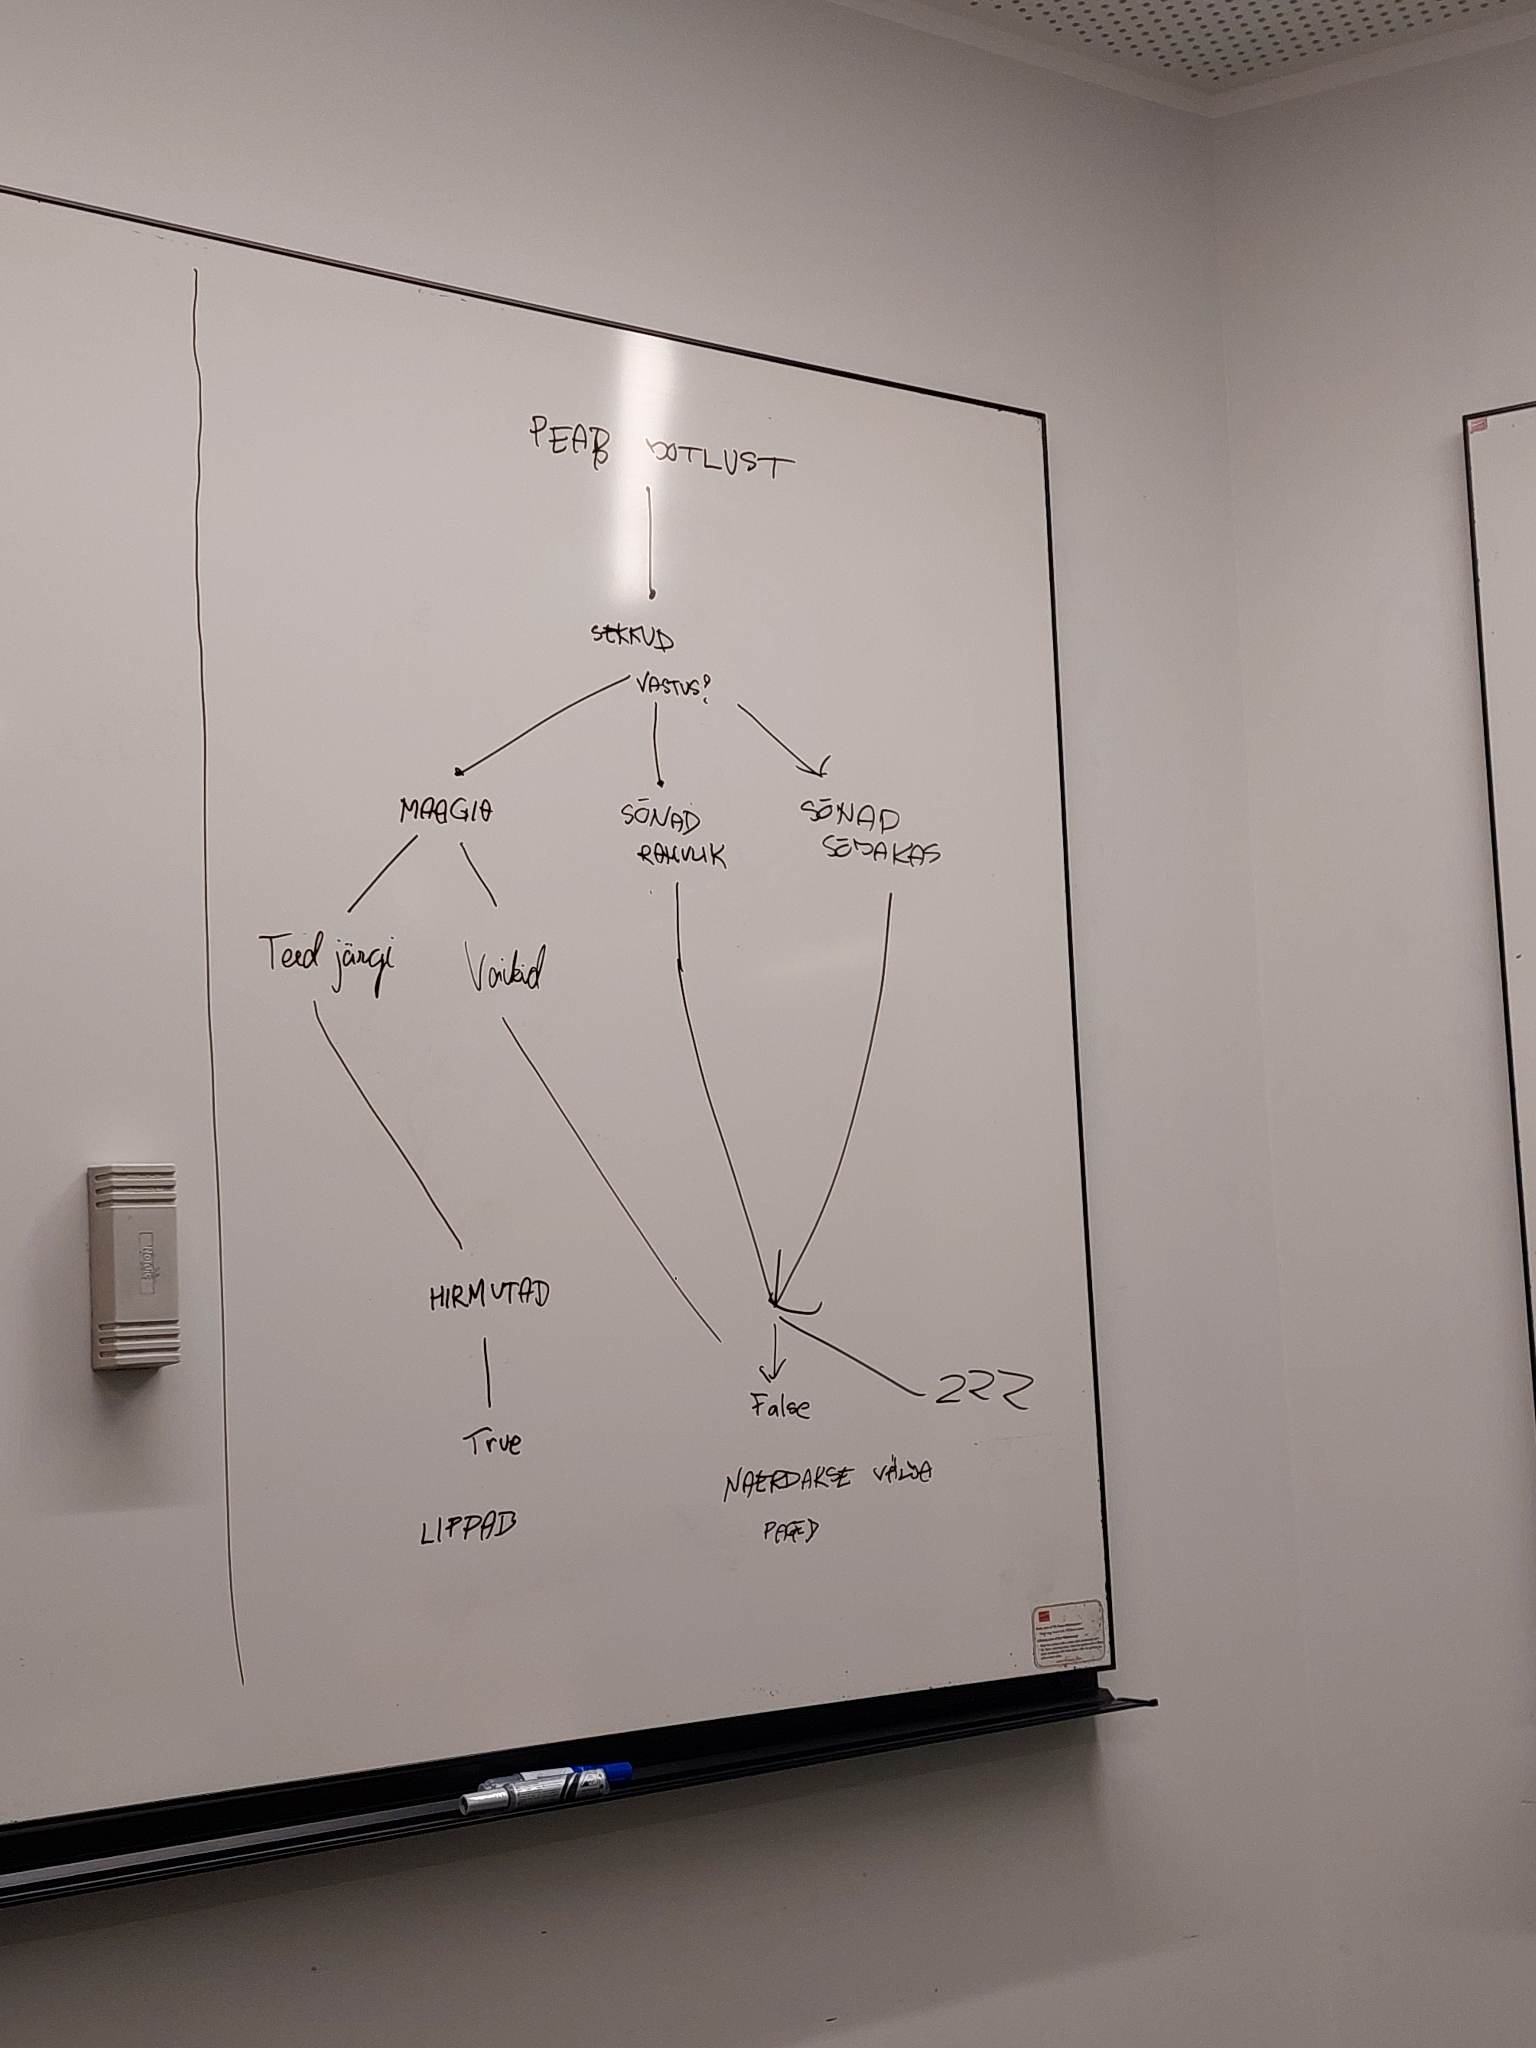 PEAB OOTLUST
SEKKUD
VASTUS?
MAAGIA
SÕNAD
RAHULIK
SÕNAD
SEJAKAS
Teed järgi
Vaikid
HIRMUTAD
True
LIPPAB
False
222
NAERDAKSE VÄLJA
PAGED